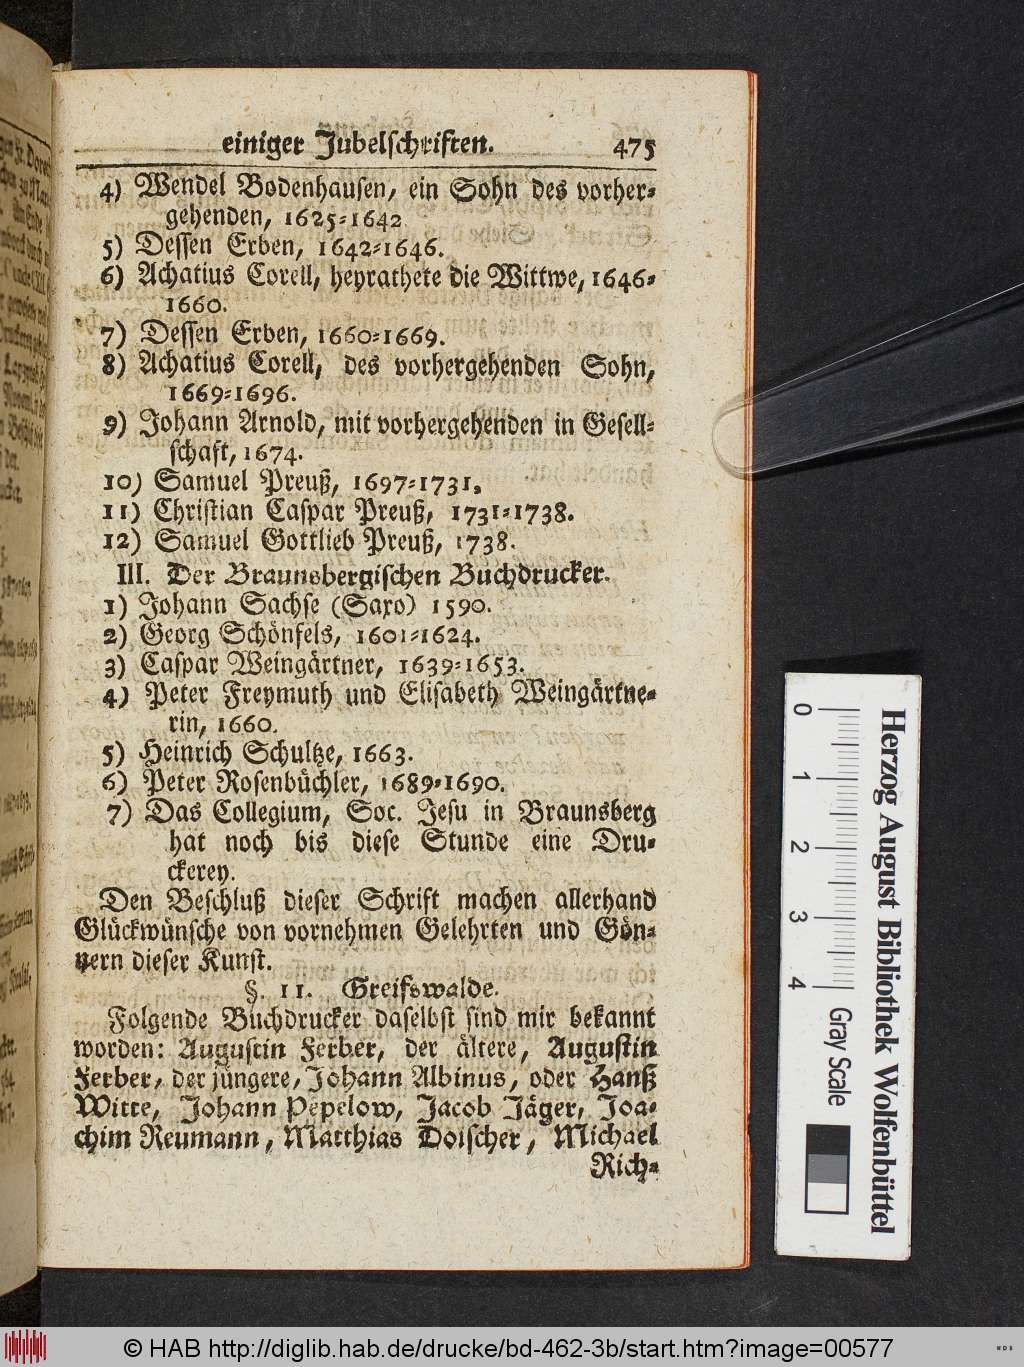 einiger Jubelschriften. 475
4) Wendel Bodenhausen, ein Sohn des vorher-
gehenden, 1625-1642
5) Dessen Erben, 1642-1646.
6) Achatius Corell, heyrathete die Wittwe, 1646-
1660.
7) Dessen Erben, 1660-1669.
8) Achatius Corell, des vorhergehenden Sohn,
1669-1696.
9) Johann Arnold, mit vorhergehenden in Gesell-
schaft, 1674.
10) Samuel Preuß, 1697-1731.
11) Christian Caspar Preuß, 1731-1738.
12) Samuel Gottlieb Preuß, 1738.
III. Der Braunsbergischen Buchdrucker.
1) Johann Sachse (Saxo) 1590.
2) Georg Schönfels, 1601-1624.
3) Caspar Weingärtner, 1639-1653.
4) Peter Freymuth und Elisabeth Weingärtne-
rin, 1660.
5) Heinrich Schultze, 1663.
6) Peter Rosenbüchler, 1689-1690.
7) Das Collegium, Soc. Jesu in Braunsberg
hat noch bis diese Stunde eine Dru-
ckerey.
Den Beschluß dieser Schrift machen allerhand
Glückwünsche von vornehmen Gelehrten und Gön-
nern dieser Kunst.
§. 11. Greifswalde.
Folgende Buchdrucker daselbst sind mir bekannt
worden: Augustin Ferber, der ältere, Augustin
Ferber, der jüngere, Johann Albinus, oder Hanß
Witte, Johann Pepelow, Jacob Jäger, Joa-
chim Reumann, Matthias Doischer, Michael
Rich-
0 1 2 3 4
Gray Scale
Herzog August Bibliothek Wolfenbüttel
© HAB http://diglib.hab.de/drucke/bd-462-3b/start.htm?image=00577